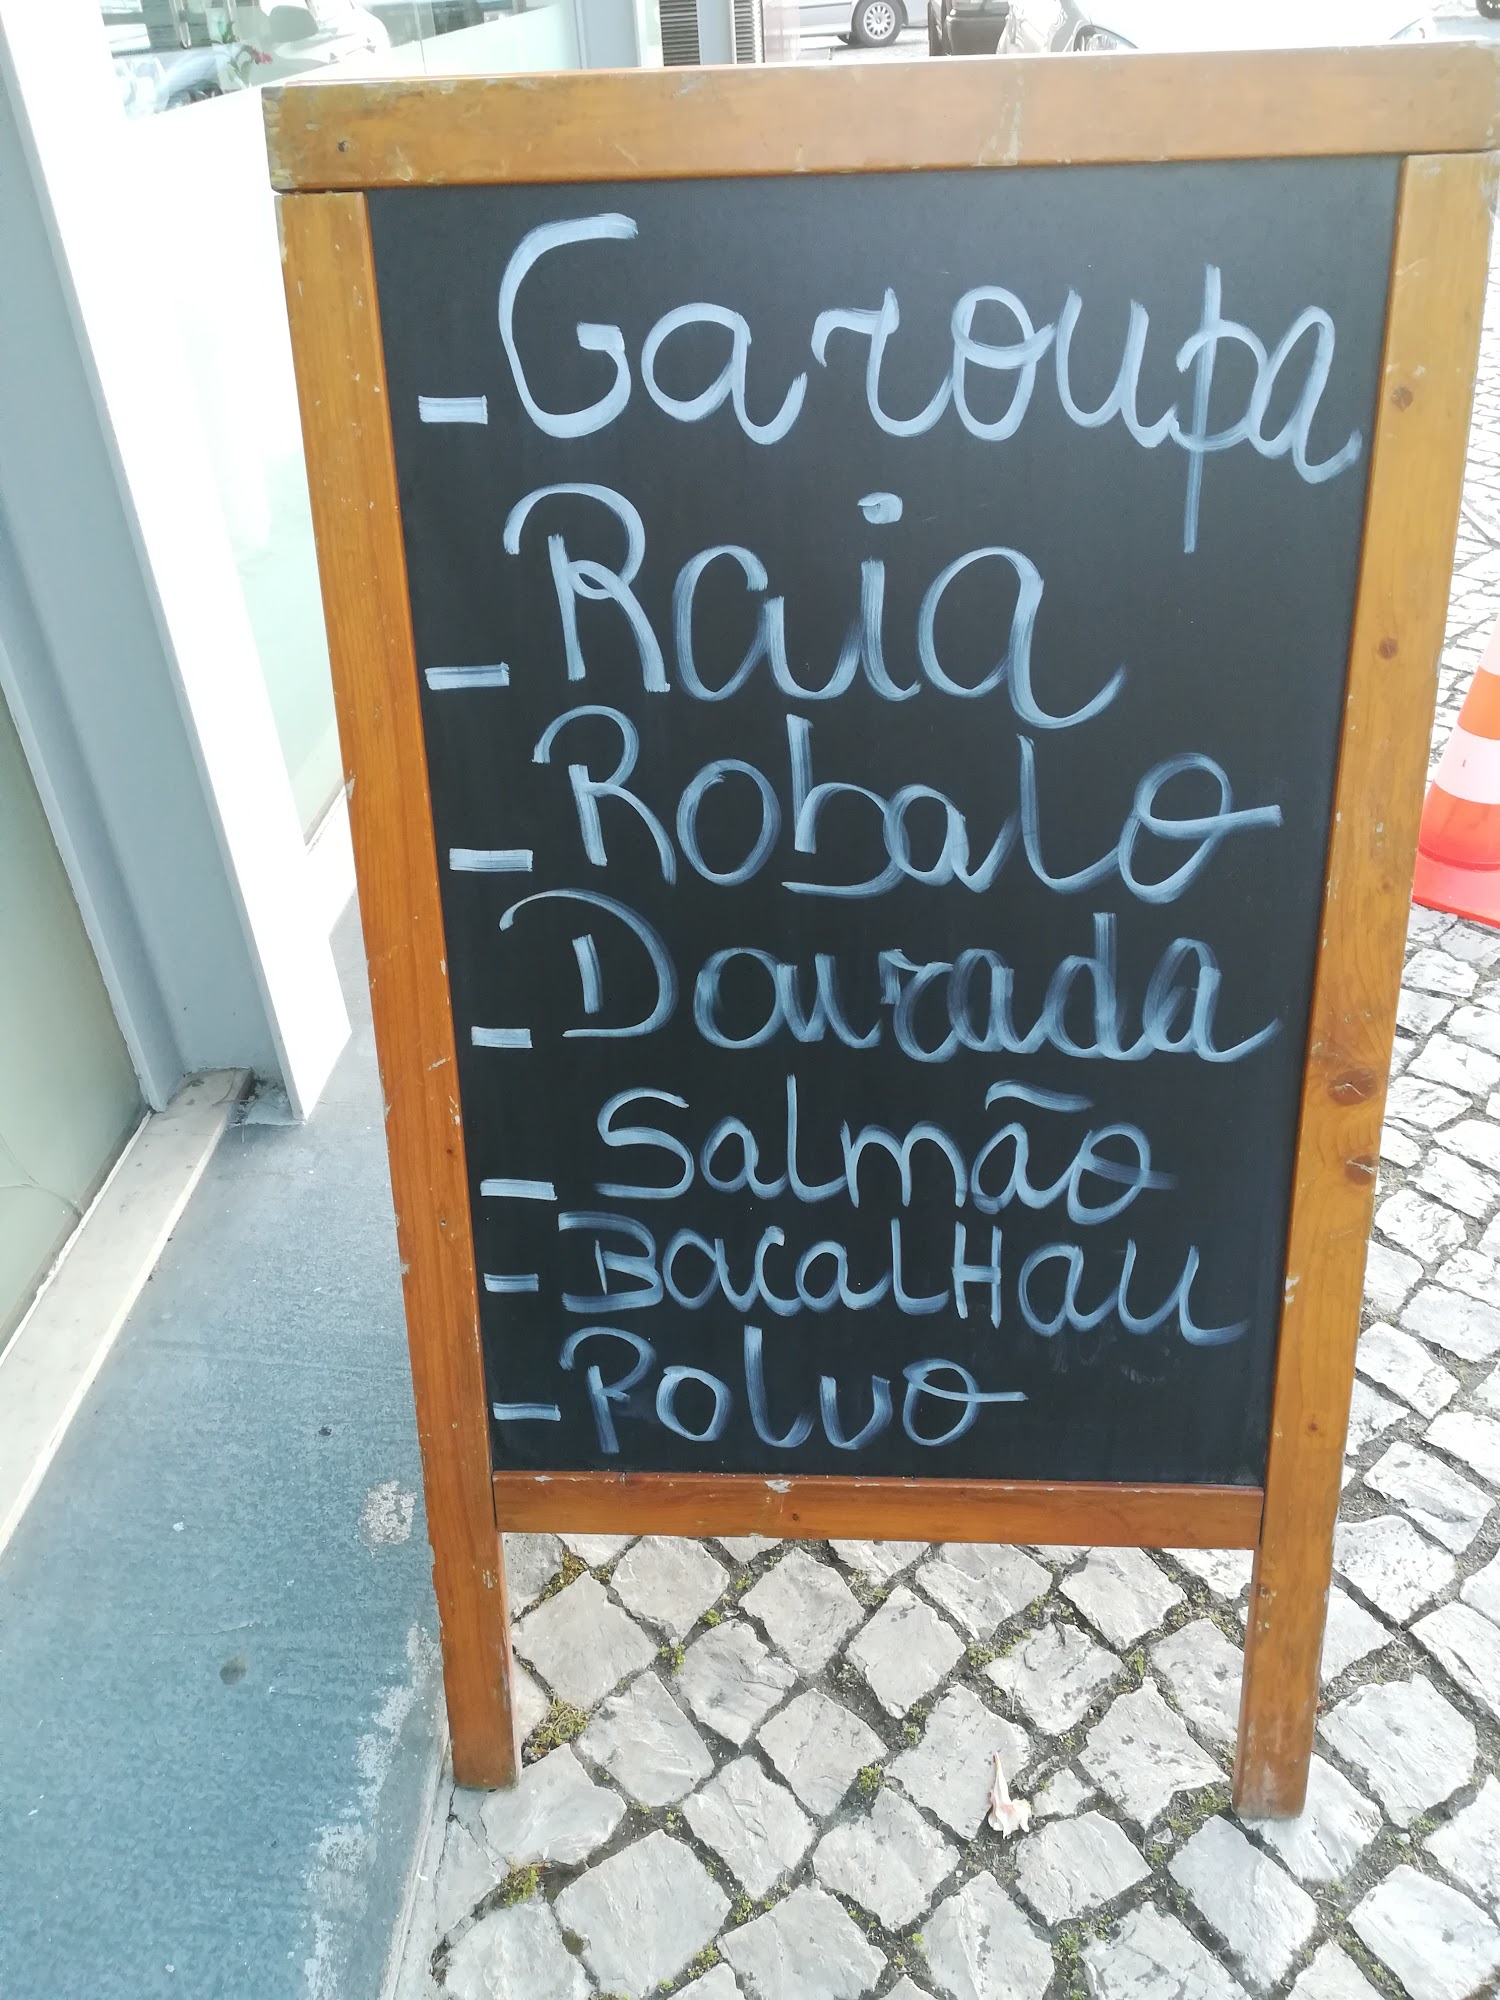 - Garoupa
- Raia
- Robalo
- Dourada
- Salmão
- BacalHau
- Polvo